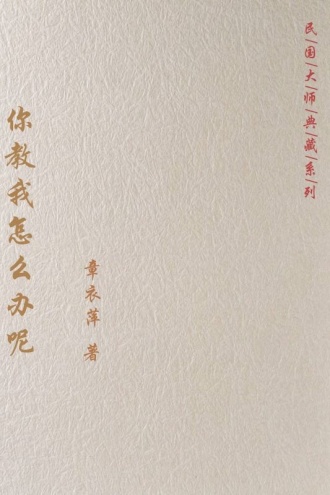 民国大师典藏系列
你教我怎么办呢
章衣萍 著